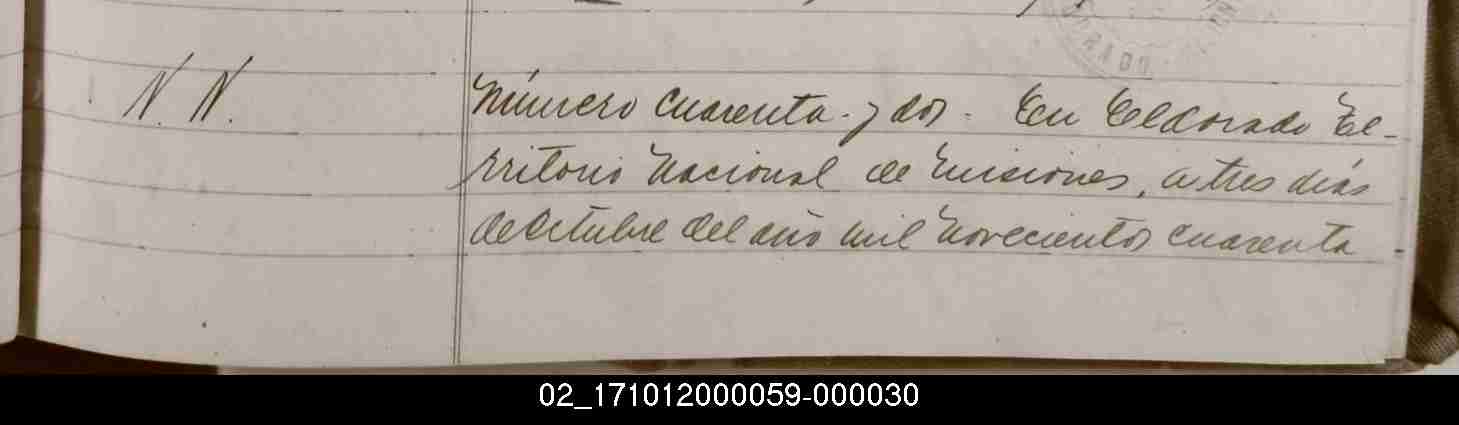 N. N.
Número cuarenta y dos. En Eldorado Te-
rritorio Nacional de Misiones, a tres días
de Octubre del año mil novecientos cuarenta
ORADO
02_171012000059-000030